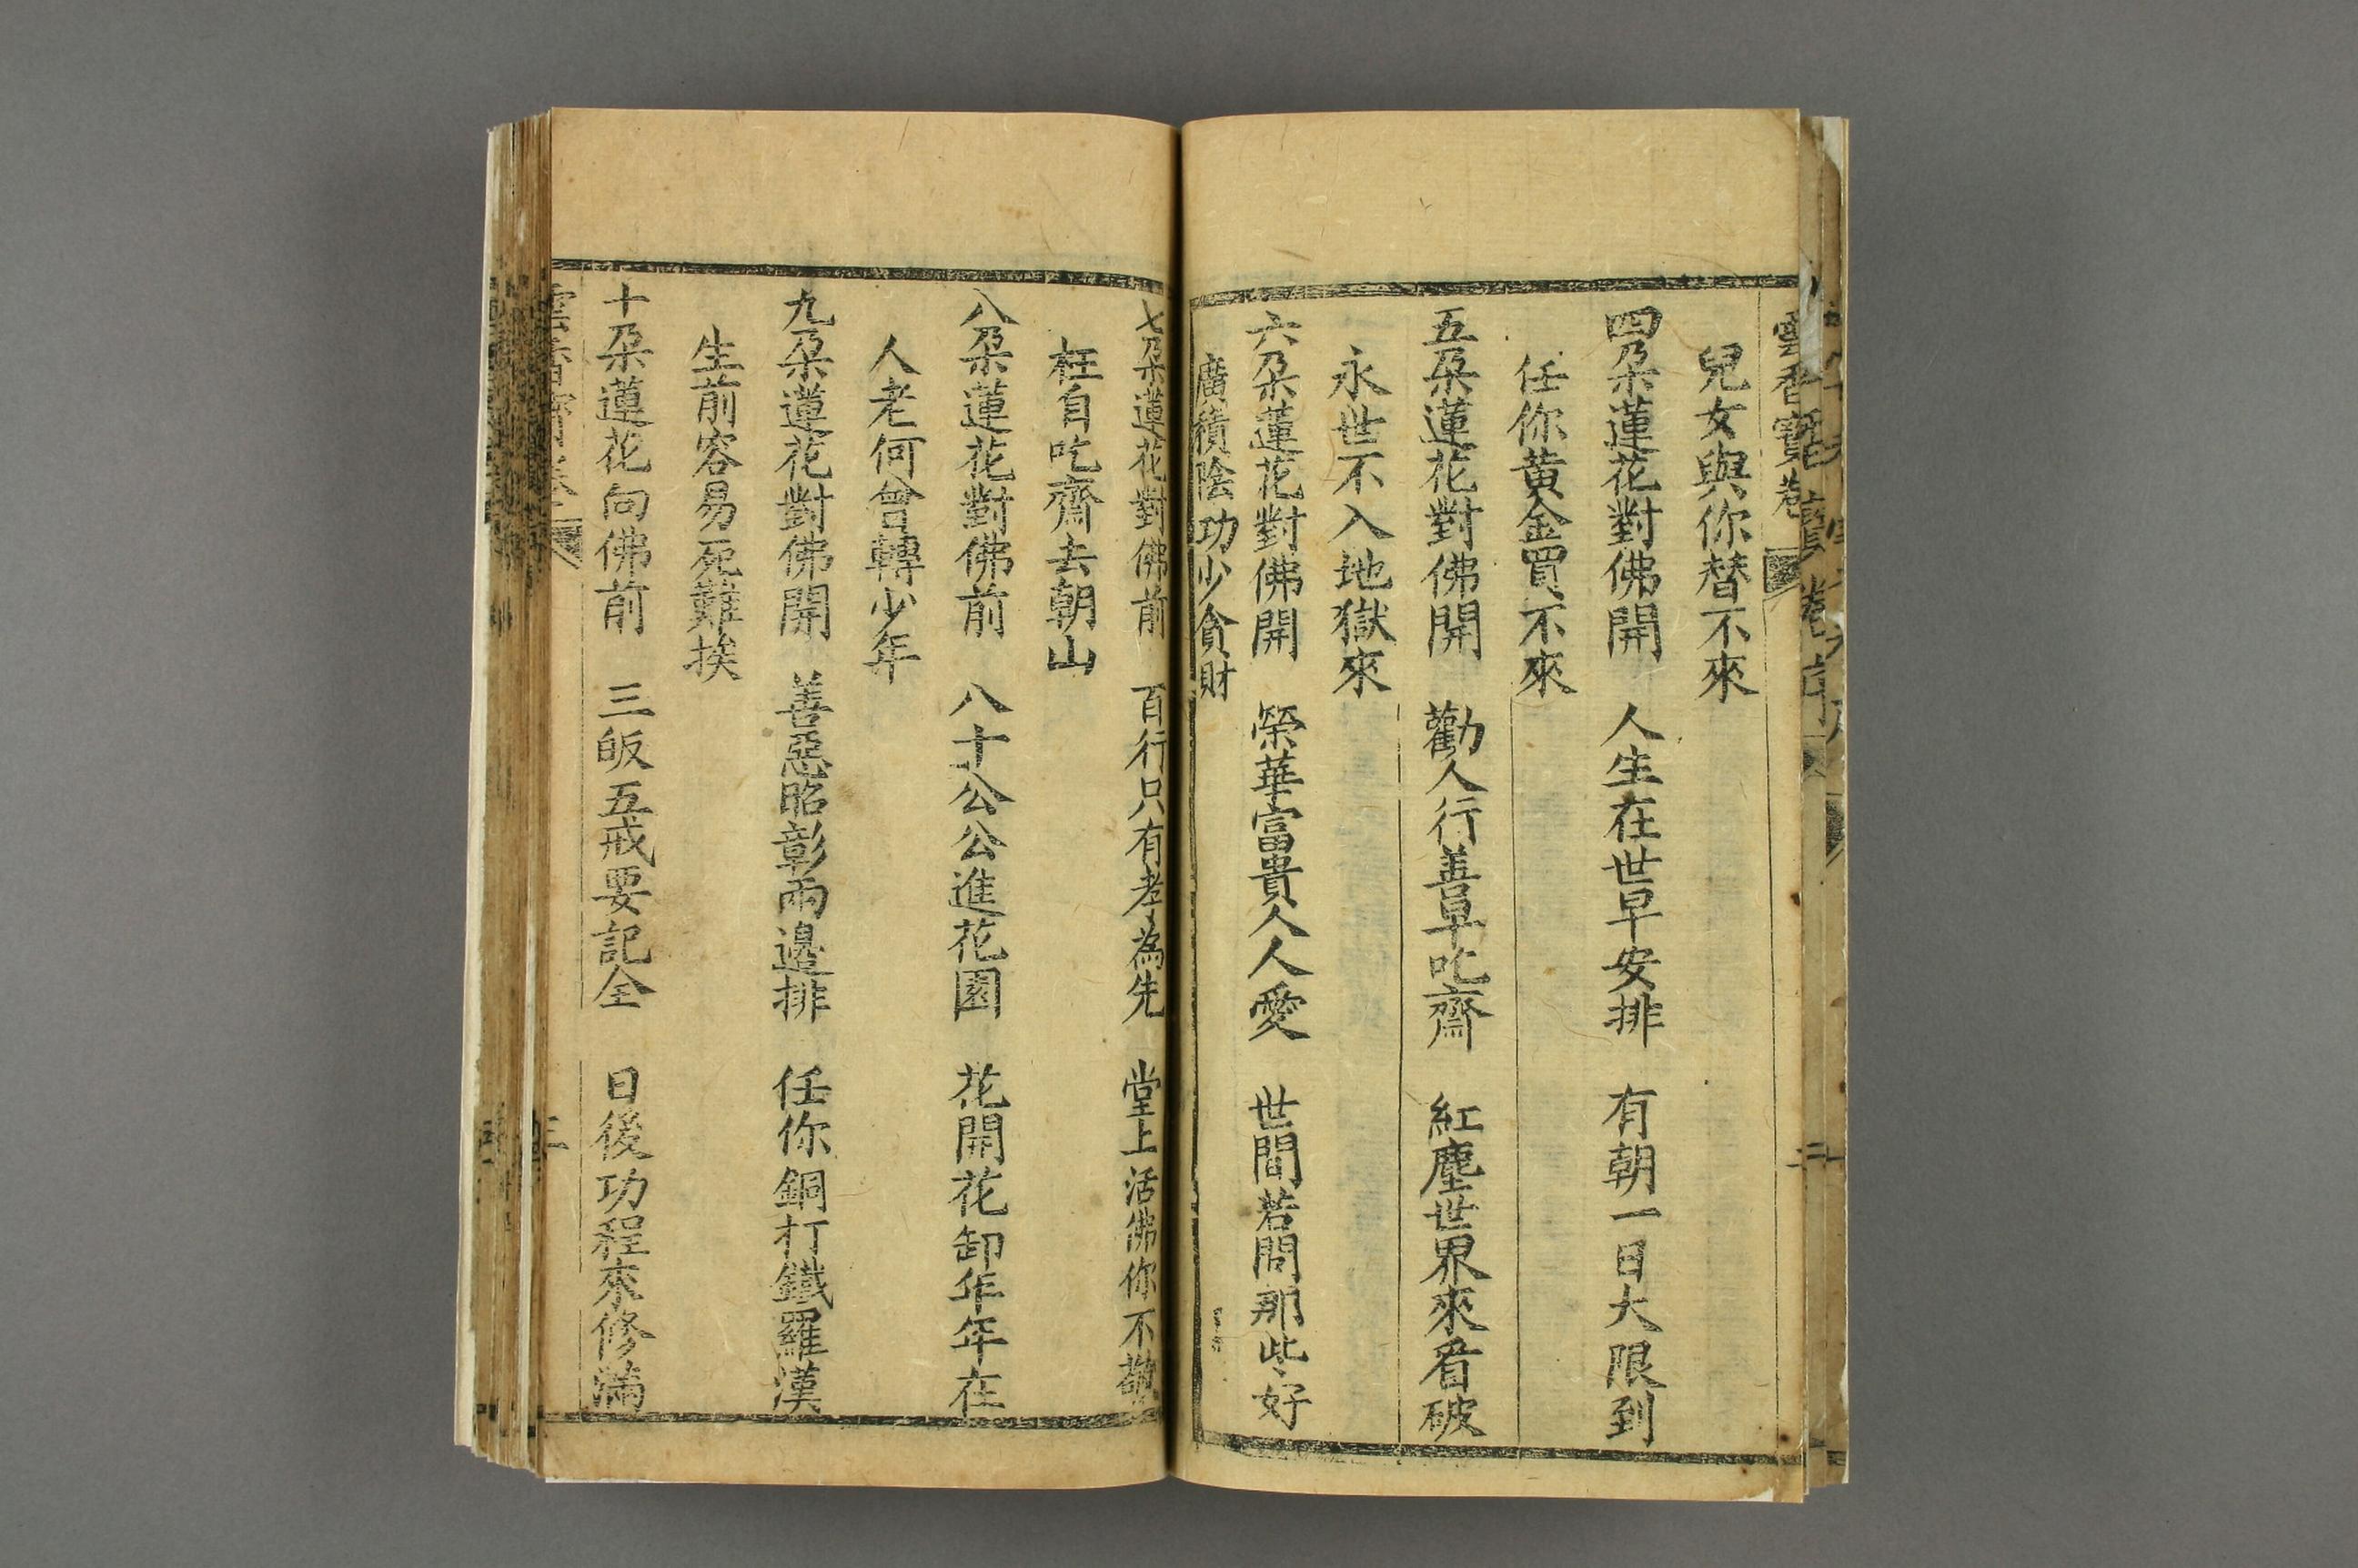 雲香寶卷
二
兒女與你替不來
四朶蓮花對佛開　人生在世早安排　有朝一日大限到
任你黄金買不來
五朶蓮花對佛開　勸人行善早吃齋　紅塵世界來看破
永世不入地獄來
六朶蓮花對佛開　榮華富貴人人愛　世間若問那些好
廣積陰功少貪財
七朶蓮花對佛前　百行只有孝為先　堂上活佛你不敬
枉自吃齋去朝山
八朶蓮花對佛前　八十公公進花園　花開花卸年年在
人老何曾轉少年
九朶蓮花對佛開　善惡昭彰兩邊排　任你銅打鐵羅漢
生前容易死難挨
十朶蓮花向佛前　三皈五戒要記全　日後功程來修滿